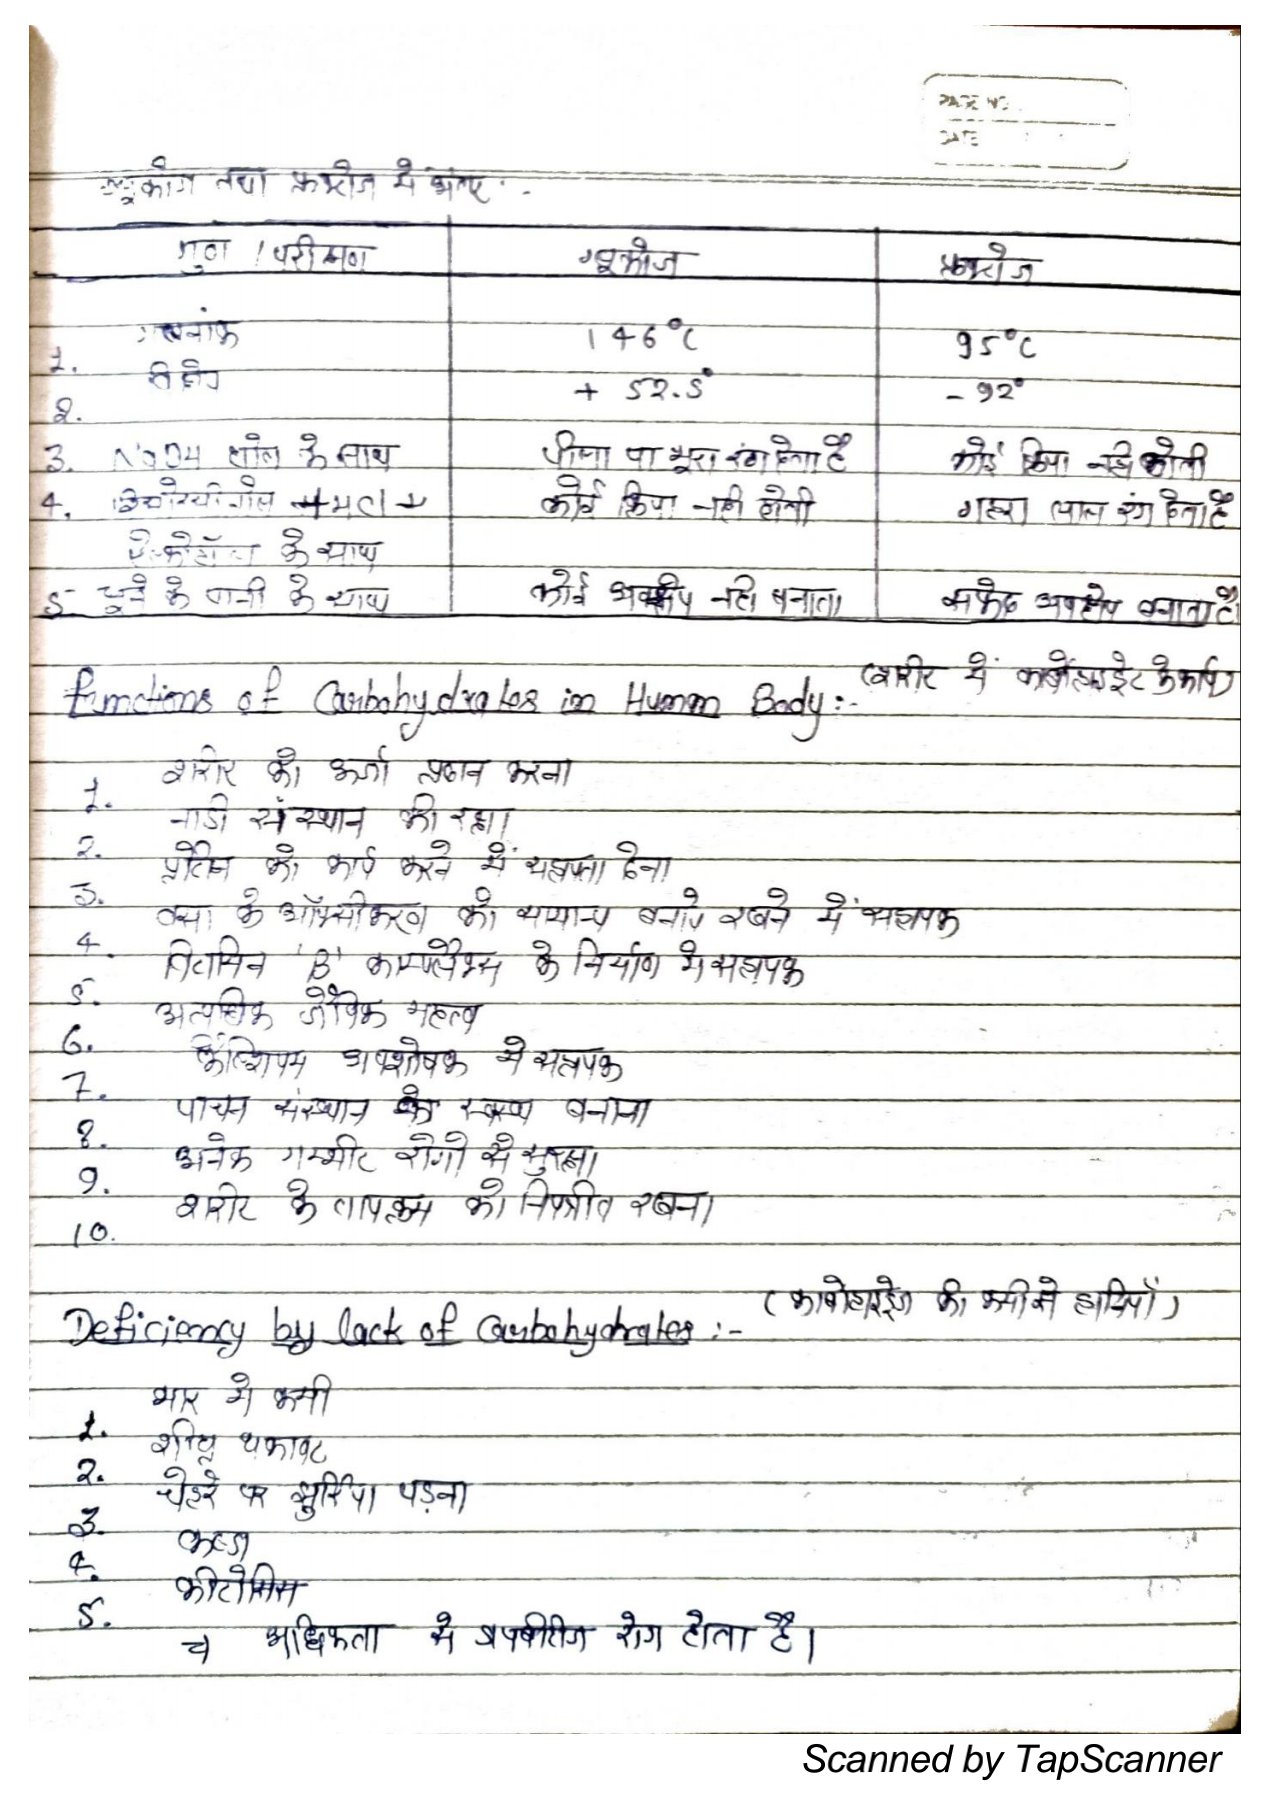 PAGE NO.
DATE
ग्लूकोज तथा फ्रक्टोज में अंतर :-
गुण / परीक्षण ग्लूकोज फ्रक्टोज
1. गलनांक 146°C 95°C
2. + 52.5° - 92°
3. NaOH घोल के साथ पीला या भूरा रंग देता है कोई क्रिया नही होती
4. + HCl + कोई क्रिया नही होती गहरा लाल रंग देता है
ऐल्कोहॉल के साथ
5- चूने के पानी के साथ कोई अवक्षेप नही बनाता सफेद अवक्षेप बनाता है।
(शरीर में कार्बोहाइड्रेट के कार्य)
functions of Carbohydrates in Human Body :-
1. शरीर को ऊर्जा प्रदान करना
2. नाडी संस्थान की रक्षा
3. प्रोटीन को कार्य करने में सहायता देना
4. वसा के ऑक्सीकरण को सामान्य बनाये रखने में सहायक
5. विटामिन 'B' काम्पलैक्स के निर्माण मे सहायक
6. अत्यधिक जैविक महत्व
7. कैल्शियम अवशोषक मे सहायक
8. पाचन संस्थान को स्वस्थ बनाना
9. अनेक गम्भीर रोगो से सुरक्षा
10. शरीर के तापक्रम को नियंत्रीत रखना
(कार्बोहाइड्रेट की कमी से हानियाँ)
Deficiency by lack of Carbohydrates :-
1. भार मे कमी
2. शीघ्र थकावट
3. चेहरे पर झुर्रिया पड़ना
4. कब्ज
5. कीटोसिस
अधिकता से रोग होता है।
Scanned by TapScanner